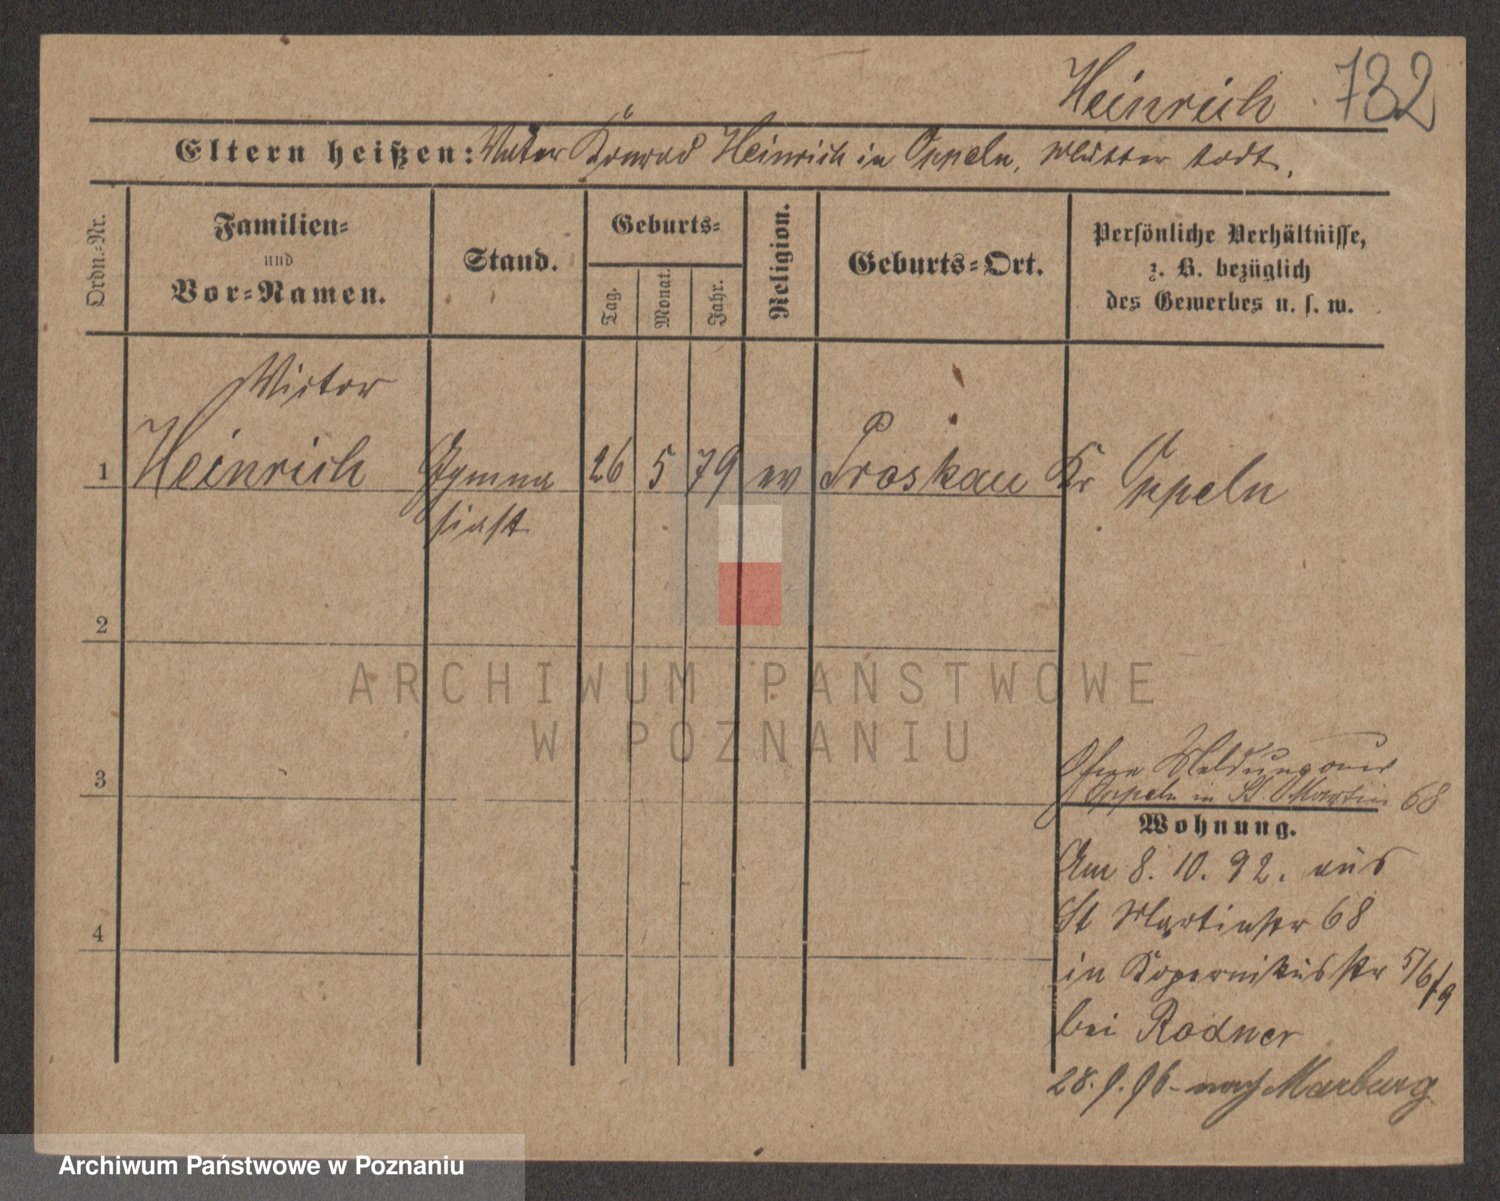 Heinrich 732
Eltern heißen: Vater Konrad Heinrich in Oppeln, Mutter todt.
Ordn.-Nr.
Familien-
und
Vor-Namen.
Stand.
Geburts-
Tag.
Monat.
Jahr.
Religion.
Geburts-Ort.
Persönliche Verhältnisse,
z. B. bezüglich
des Gewerbes u. s. w.
Victor
1 Heinrich Gymna 26 5 79 ev Proskau Kr Oppeln
siast
2
ARCHIWUM PAŃSTWOWE
W POZNANIU
3
Ohne Meldung aus
Oppeln in St. Martin 68
Wohnung.
Am 8. 10. 92. aus
St Martinstr 68
4
in Kopernikusstr 5/6
bei Rodner
28. 9. 96 - nach Marburg
Archiwum Państwowe w Poznaniu